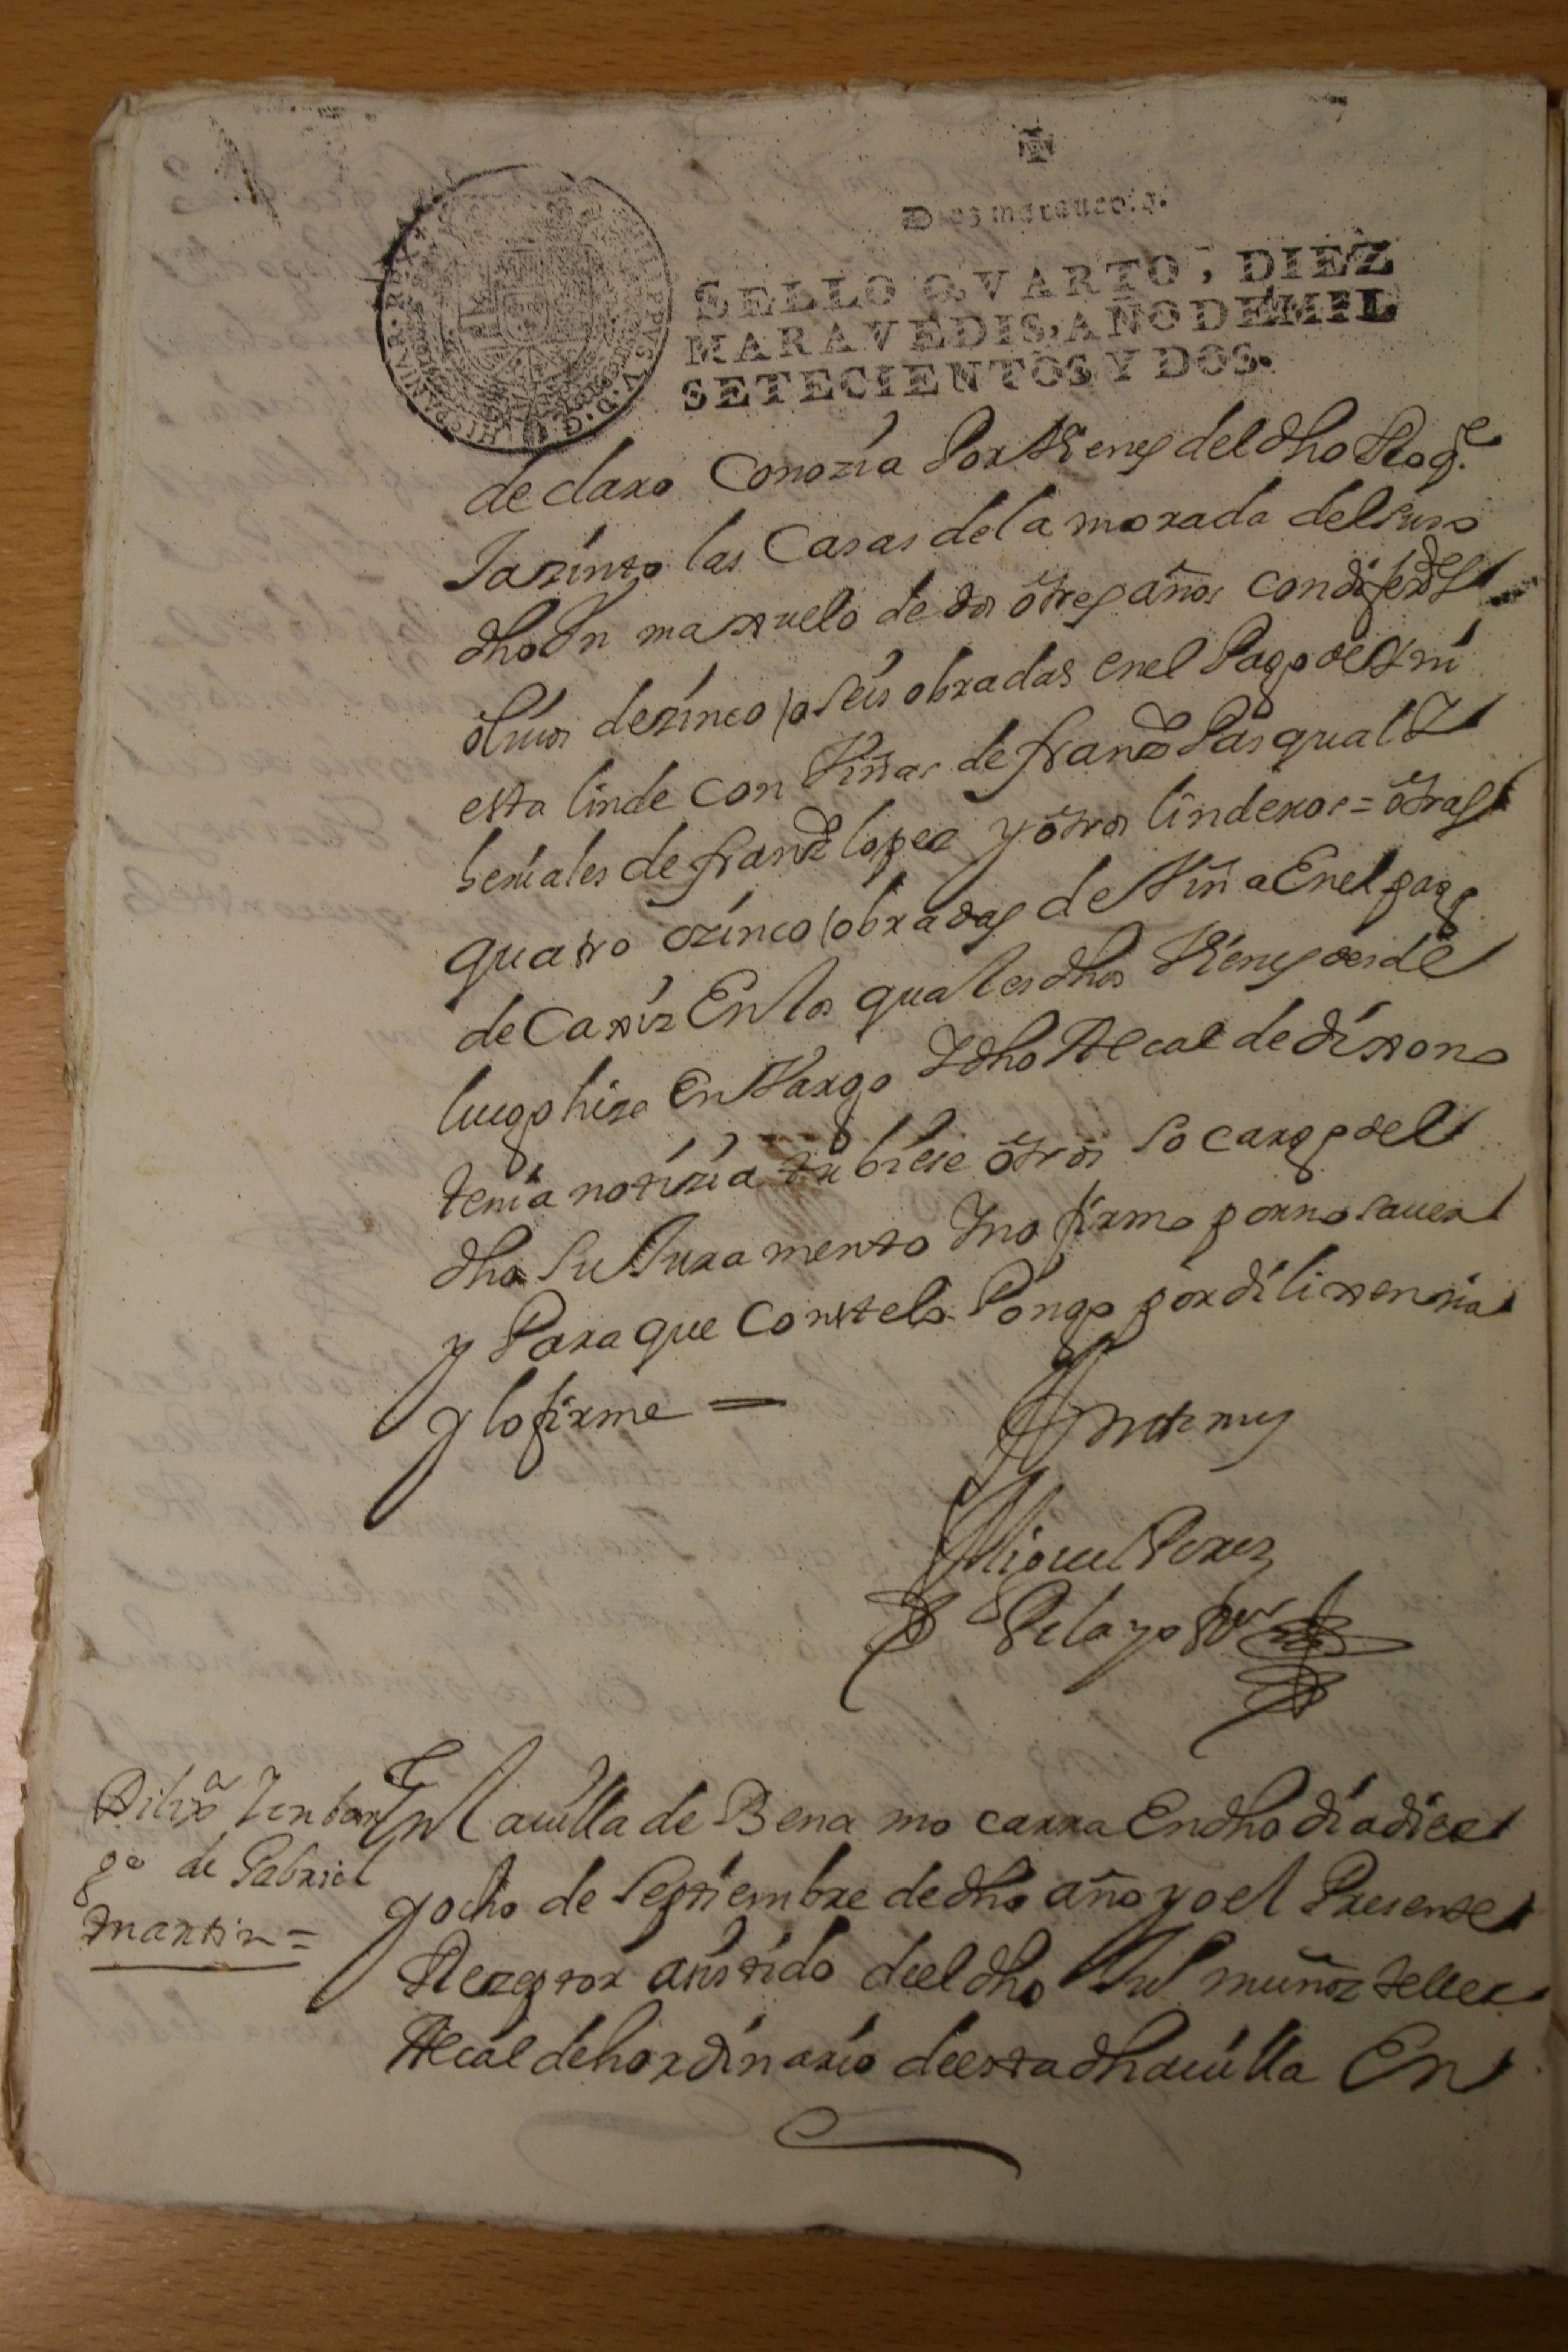 Diez maravedis.
SELLO QVARTO, DIEZ
MARAVEDIS, AÑO DE MIL
SETECIENTOS Y DOS.
HISPANIAR. REX PHILIPPVS. V. D. G.
declaro conozia Por Vienes del dho Roqe
Jazinto las Casas de la morada del suso
dho Un maxuelo de dos o tres años con diferes
olivos de zinco o seis obradas en el Pago de
esta linde con Viñas de franco Pasqual Y
beniales de franco lopez y otros linderos = otras
quatro o zinco obradas de Viña En el pago
de Caxiz En los quales dhos Vienes desde
luego hize Envargo Y dho Alcalde dixo no
tenia notizia tubiese otros so cargo del
dho su Juramento Y no firmo por no saver
y Para que Conste lo Pongo por dilixenzia
y lo firme =
Ante my
Miguel Perez
Pelayo
Dilixa Y enbar
go de Gabriel
Martin =
En la villa de Bena mocarra En dho dia diez
y ocho de Septiembre de dho año yo el Presente
Rezeptor asistido de el dho muñoz tellez
Alcalde hordinario de esta dha villa En